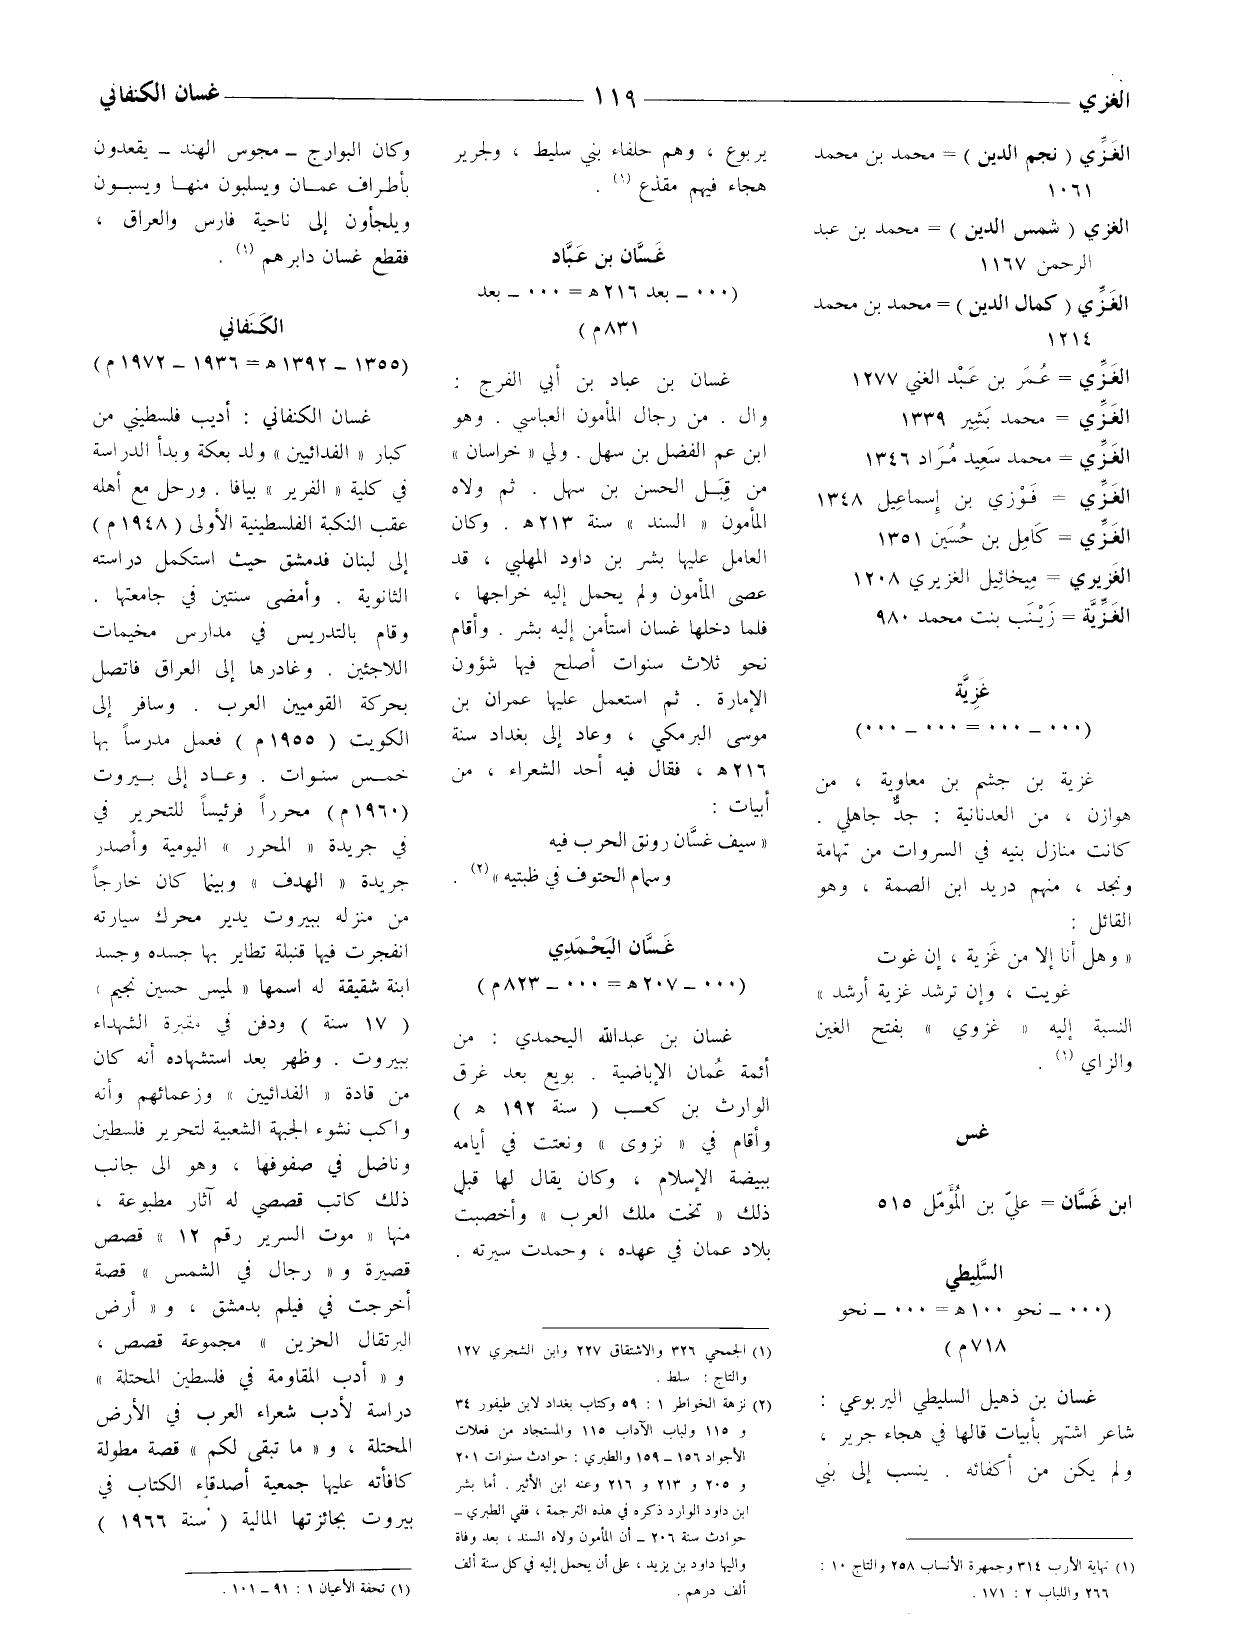 الغزي ١١٩ غسان الكنفاني
الغَزِّي ( نجم الدين ) = محمد بن محمد
١٠٦١
الغزي ( شمس الدين ) = محمد بن عبد
الرحمن ١١٦٧
الغَزِّي ( كمال الدين ) = محمد بن محمد
١٢١٤
الغَزِّي = عُمَر بن عَبْد الغني ١٢٧٧
الغَزِّي = محمد بَشِير ١٣٣٩
الغَزِّي = محمد سَعِيد مُرَاد ١٣٤٦
الغَزِّي = فَوْزي بن إسماعيل ١٣٤٨
الغَزِّي = كَامِل بن حُسَين ١٣٥١
الغَزيري = مِيخائيل الغزيري ١٢٠٨
الغَزِّيَّة = زَيْنَب بنت محمد ٩٨٠
غَزِيَّة
(٠٠٠ ـ ٠٠٠ = ٠٠٠ ـ ٠٠٠)
غزية بن جشم بن معاوية ، من
هوازن ، من العدنانية : جدٌّ جاهلي .
كانت منازل بنيه في السروات من تهامة
ونجد ، منهم دريد ابن الصمة ، وهو
القائل :
« وهل أنا إلا من غَزية ، إن غوت
غويت ، وإن ترشد غزية أرشد »
النسبة إليه « غزوي » بفتح الغين
والزاي (١) .
غس
ابن غَسَّان = عليّ بن المُؤَمّل ٥١٥
السَّلِيطي
(٠٠٠ ـ نحو ١٠٠ هـ = ٠٠٠ ـ نحو
٧١٨ م )
غسان بن ذهيل السليطي اليربوعي :
شاعر اشتهر بأبيات قالها في هجاء جرير ،
ولم يكن من أكفائه . ينسب إلى بني
(١) نهاية الأرب ٣١٤ وجمهرة الأنساب ٢٥٨ والتاج ١٠ :
٢٦٦ واللباب ٢ : ١٧١ .
يربوع ، وهم حلفاء بني سليط ، ولجرير
هجاء فيهم مقذع (١) .
غَسَّان بن عَبَّاد
(٠٠٠ ـ بعد ٢١٦ هـ = ٠٠٠ ـ بعد
٨٣١ م )
غسان بن عباد بن أبي الفرج :
وال . من رجال المأمون العباسي . وهو
ابن عم الفضل بن سهل . ولي « خراسان »
من قِبَل الحسن بن سهل . ثم ولاه
المأمون « السند » سنة ٢١٣ هـ . وكان
العامل عليها بشر بن داود المهلبي ، قد
عصى المأمون ولم يحمل إليه خراجها ،
فلما دخلها غسان استأمن إليه بشر . وأقام
نحو ثلاث سنوات أصلح فيها شؤون
الإمارة . ثم استعمل عليها عمران بن
موسى البرمكي ، وعاد إلى بغداد سنة
٢١٦ هـ ، فقال فيه أحد الشعراء ، من
أبيات :
« سيف غسَّان رونق الحرب فيه
وسمام الحتوف في ظبتيه » (٢) .
غَسَّان اليَحْمَدِي
(٠٠٠ ـ ٢٠٧ هـ = ٠٠٠ ـ ٨٢٣ م )
غسان بن عبدالله اليحمدي : من
أئمة عُمان الإباضية . بويع بعد غرق
الوارث بن كعب ( سنة ١٩٢ هـ )
وأقام في « نزوى » ونعتت في أيامه
ببيضة الإسلام ، وكان يقال لها قبل
ذلك « تخت ملك العرب » وأخصبت
بلاد عمان في عهده ، وحمدت سيرته .
(١) الجمحي ٣٢٦ والاشتقاق ٢٢٧ وابن الشجري ١٢٧
والتاج : سلط .
(٢) نزهة الخواطر ١ : ٥٩ وكتاب بغداد لابن طيفور ٣٤
و ١١٥ ولباب الآداب ١١٥ والمستجاد من فعلات
الأجواد ١٥٦ ـ ١٥٩ والطبري : حوادث سنوات ٢٠١
و ٢٠٥ و ٢١٣ و ٢١٦ وعنه ابن الأثير . أما بشر
ابن داود الوارد ذكره في هذه الترجمة ، ففي الطبري ـ
حوادث سنة ٢٠٦ ـ أن المأمون ولاه السند ، بعد وفاة
واليها داود بن يزيد ، على أن يحمل إليه في كل سنة ألف
ألف درهم .
وكان البوارج ـ مجوس الهند ـ يقعدون
بأطراف عمان ويسلبون منها ويسبون
ويلجأون إلى ناحية فارس والعراق ،
فقطع غسان دابرهم (١) .
الكَنَفاني
(١٣٥٥ ـ ١٣٩٢ هـ = ١٩٣٦ ـ ١٩٧٢ م )
غسان الكنفاني : أديب فلسطيني من
كبار « الفدائيين » ولد بعكة وبدأ الدراسة
في كلية « الفرير » بيافا . ورحل مع أهله
عقب النكبة الفلسطينية الأولى ( ١٩٤٨ م )
إلى لبنان فدمشق حيث استكمل دراسته
الثانوية . وأمضى سنتين في جامعتها .
وقام بالتدريس في مدارس مخيمات
اللاجئين . وغادرها إلى العراق فاتصل
بحركة القوميين العرب . وسافر إلى
الكويت ( ١٩٥٥ م ) فعمل مدرساً بها
خمس سنوات . وعاد إلى بيروت
(١٩٦٠ م ) محرراً فرئيساً للتحرير في
في جريدة « المحرر » اليومية وأصدر
جريدة « الهدف » وبينما كان خارجاً
من منزله ببيروت يدير محرك سيارته
انفجرت فيها قنبلة تطاير بها جسده وجسد
ابنة شقيقة له اسمها « لميس حسين نجيم »
( ١٧ سنة ) ودفن في مقبرة الشهداء
ببيروت . وظهر بعد استشهاده أنه كان
من قادة « الفدائيين » وزعمائهم وأنه
واكب نشوء الجبهة الشعبية لتحرير فلسطين
وناضل في صفوفها ، وهو الى جانب
ذلك كاتب قصصي له آثار مطبوعة ،
منها « موت السرير رقم ١٢ » قصص
قصيرة و « رجال في الشمس » قصة
أخرجت في فيلم بدمشق ، و « أرض
البرتقال الحزين » مجموعة قصص ،
و « أدب المقاومة في فلسطين المحتلة »
دراسة لأدب شعراء العرب في الأرض
المحتلة ، و « ما تبقى لكم » قصة مطولة
كافأته عليها جمعية أصدقاء الكتاب في
بيروت بجائزتها المالية ( سنة ١٩٦٦ )
(١) تحفة الأعيان ١ : ٩١ ـ ١٠١ .